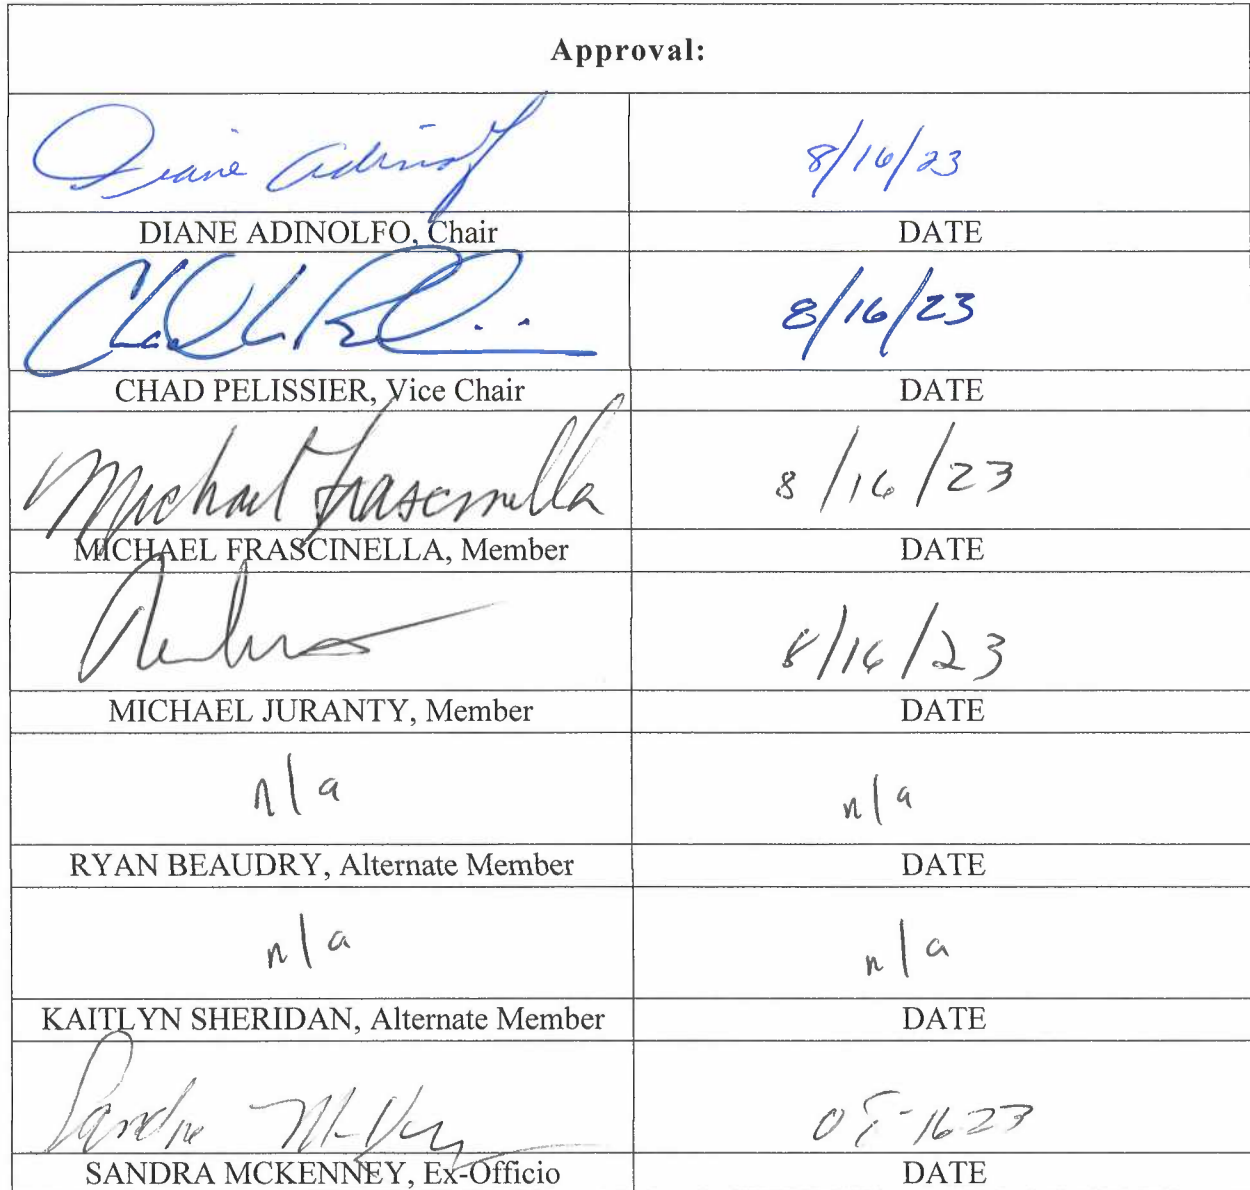 Approval:
Diane Adinolf 8/16/23
DIANE ADINOLFO, Chair DATE
8/16/23
CHAD PELISSIER, Vice Chair DATE
Michael Frascinella 8/16/23
MICHAEL FRASCINELLA, Member DATE
8/16/23
MICHAEL JURANTY, Member DATE
n/a n/a
RYAN BEAUDRY, Alternate Member DATE
n/a n/a
KAITLYN SHERIDAN, Alternate Member DATE
Sandra 08-1623
SANDRA MCKENNEY, Ex-Officio DATE